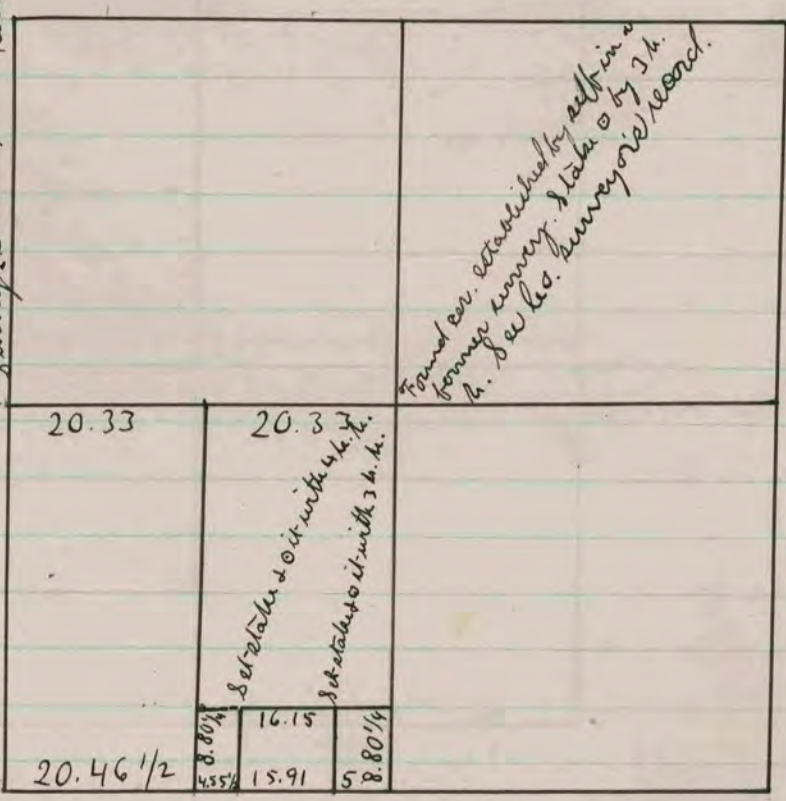 Found cor. established by self in a
former survey. Stake ⊙ by 3 h.
h. See Co. surveyor's record.
20.33
20.33
Set stake & ⊙ it with 4 h. h.
Set stake & ⊙ it with 3 h. h.
8.80 1/4
16.15
8.80 1/4
20.46 1/2
4.55 1/2
15.91
5